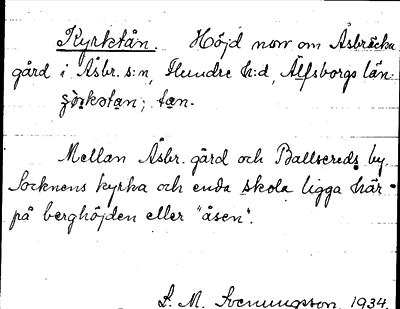 Kyrktån. Höjd norr om Åsbräcka
gård i Åsbr. s:n, Flundre h:d, Älfsborgs län.
tan.
Mellan Åsbr. gård och Ballsereds by.
Socknens kyrka och enda skola ligga här
på berghöjden eller "åsen".
S. M. Svenungsson 1934.